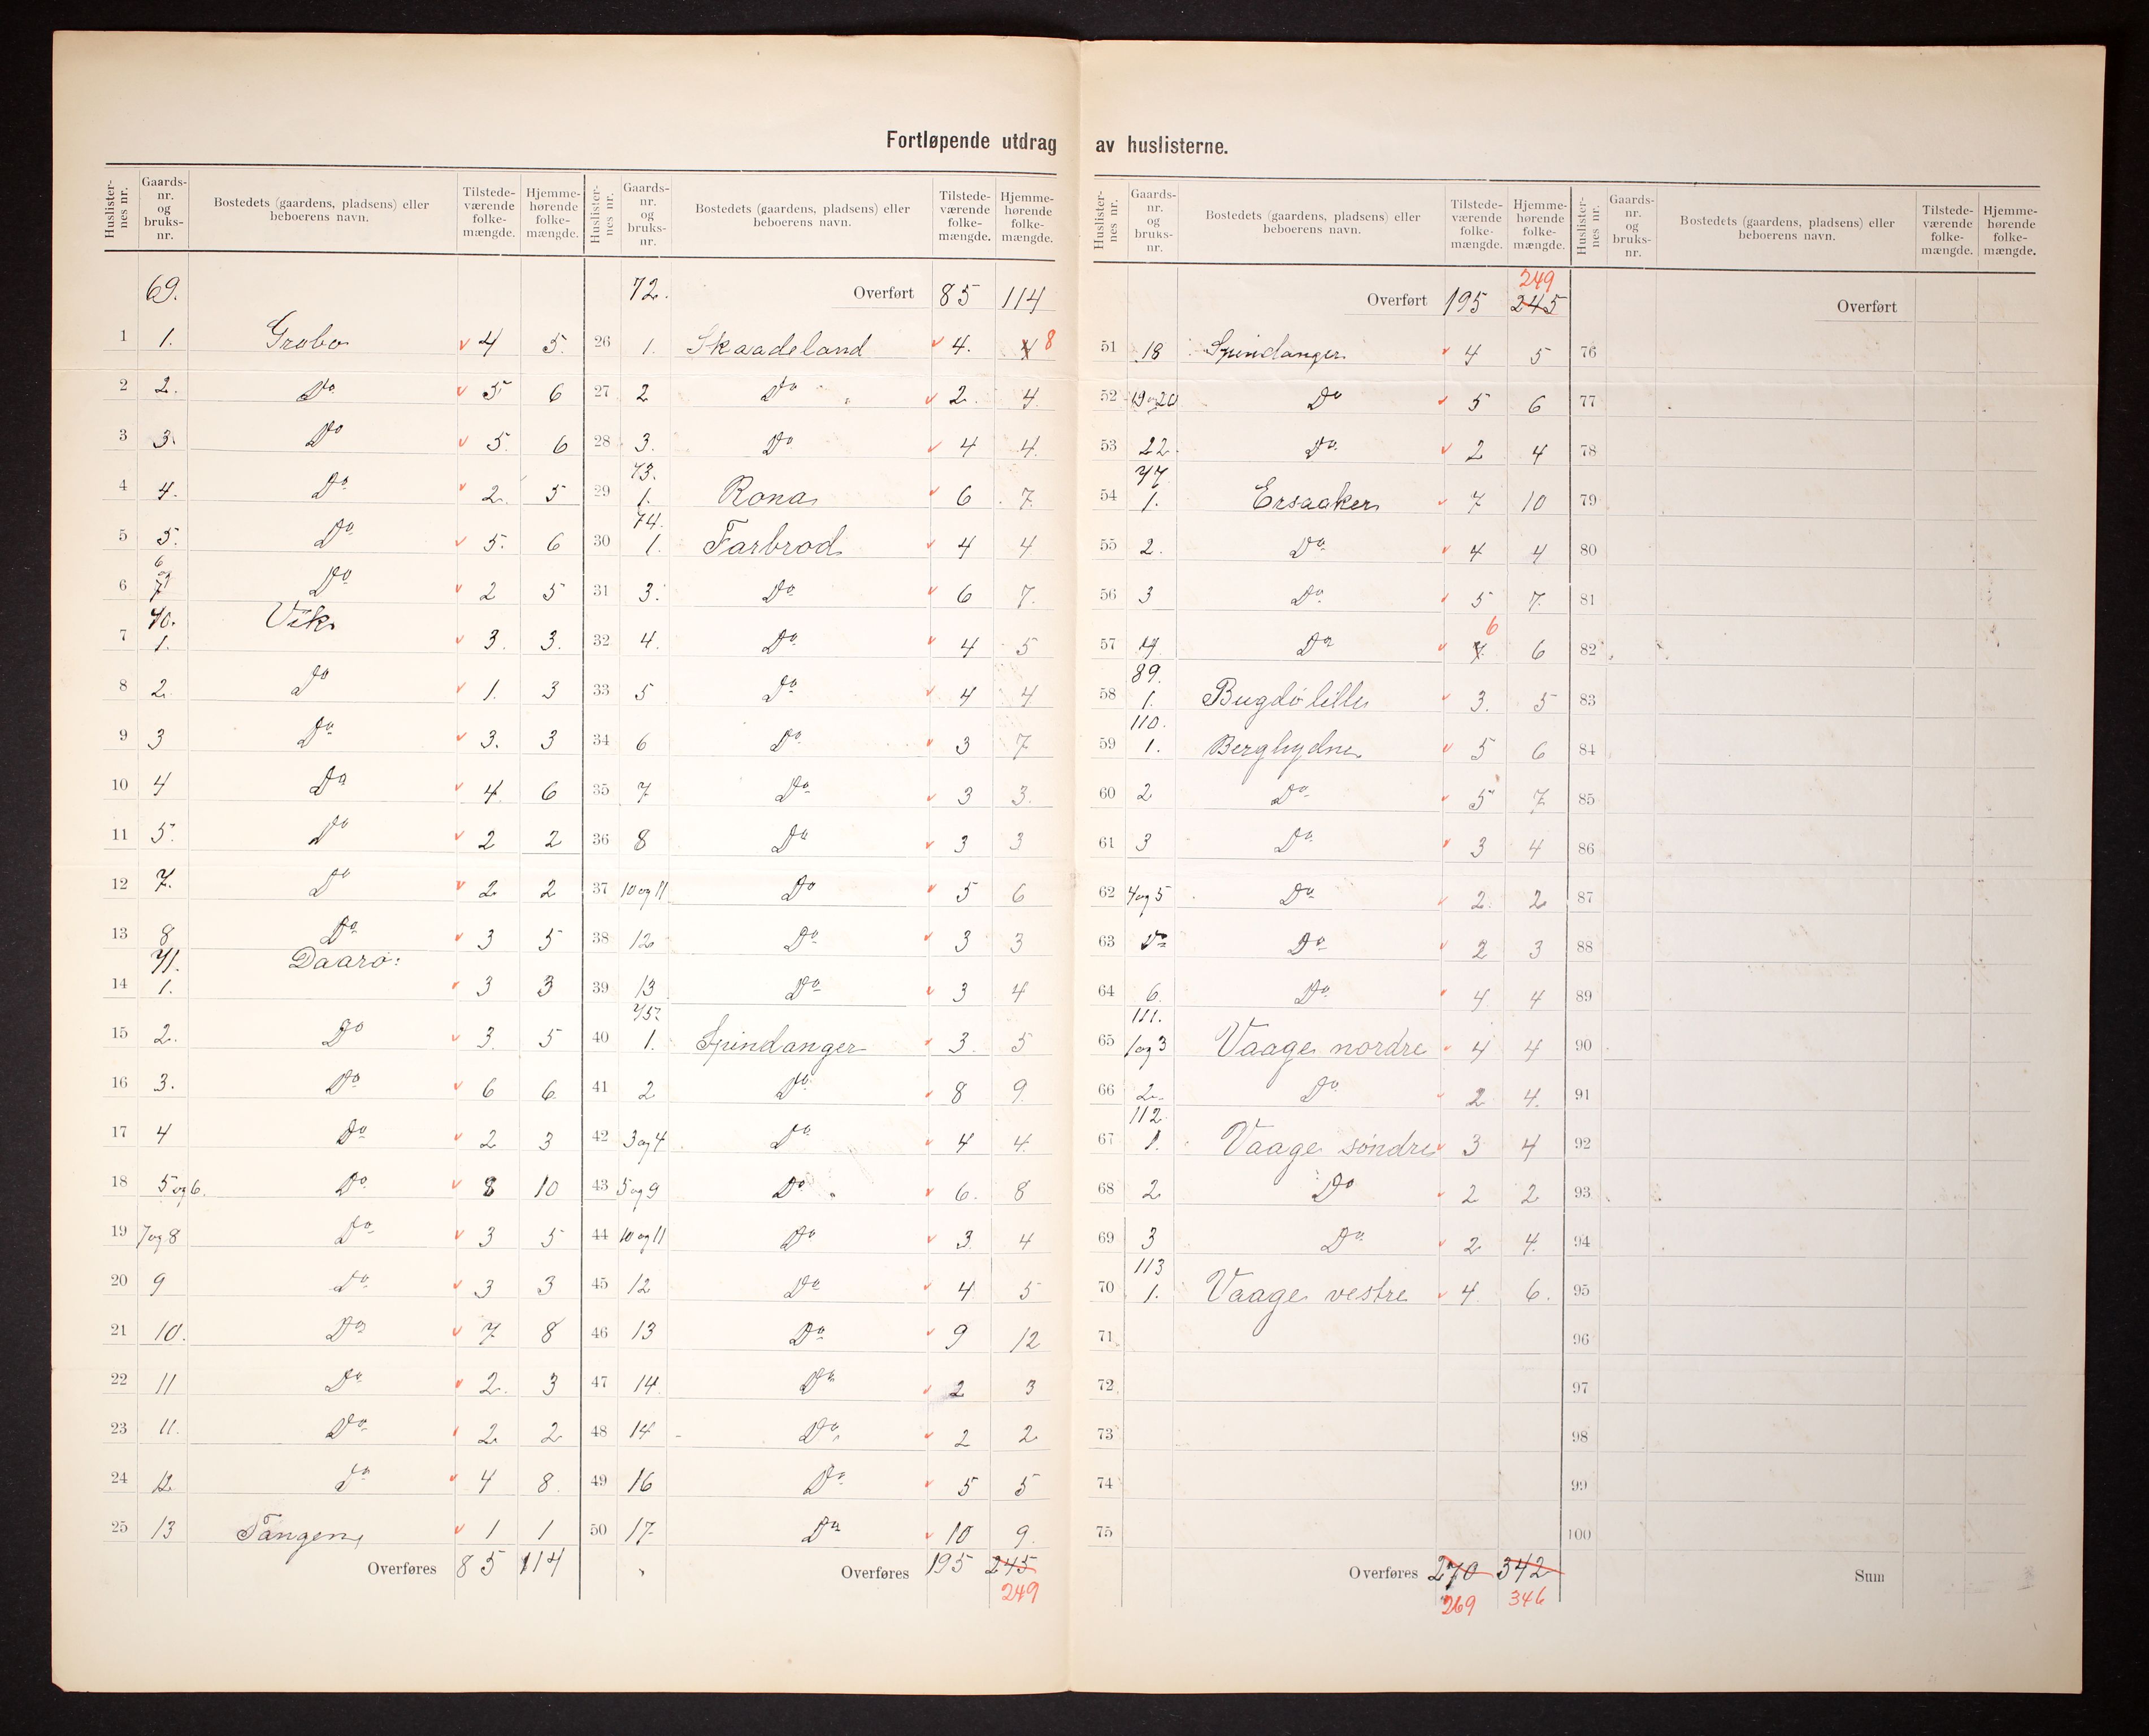 Fortløpende utdrag av huslisterne.
Huslister-nes nr. Gaards-nr. og bruks-nr. Bostedets (gaardens, pladsens) eller beboerens navn. Tilstede-værende folke-mængde. Hjemme-hørende folke-mængde.
69.
1 1. Grobo 4 5.
2 2. Do 5 6
3 3. Do 5. 6
4 4. Do 2. 5
5 5. Do 5. 6
6 6 og 7 Do 2 5
70. Vik
7 1. 3. 3.
8 2. Do 1. 3
9 3 Do 3. 3
10 4 Do 4. 6
11 5. Do 2 2
12 7. Do 2 2
13 8 Do 3 5
71. Daarø:
14 1. 3 3
15 2. Do 3. 5
16 3. Do 6 6.
17 4 Do 2 3
18 5 og 6. Do 8 10
19 7 og 8 Do 3 5
20 9 Do 3 3
21 10. Do 7 8
22 11 Do 2. 3
23 11. Do 2 2
24 12 Do 4 8.
25 13 Tangen 1 1
Overføres 85 114
Huslister-nes nr. Gaards-nr. og bruks-nr. Bostedets (gaardens, pladsens) eller beboerens navn. Tilstede-værende folke-mængde. Hjemme-hørende folke-mængde.
72. Overført 85 114
26 1. Skaadeland 4. 4 8
27 2 Do 2. 4.
28 3. Do 4 4.
73.
29 1. Rona 6 7.
74.
30 1. Farbrod 4 4
31 3. Do 6 7.
32 4. Do 4 5
33 5 Do 4 4
34 6 Do 3 7
35 7 Do 3 3.
36 8 Do 3 3
37 10 og 11 Do 5 6
38 12 Do 3 3
39 13 Do 3 4
75.
40 1. Spindanger 3. 5
41 2 Do 8 9.
42 3 og 4 Do 4 4.
43 5 og 9 Do 6. 8
44 10 og 11 Do 3. 4
45 12 Do 4 5
46 13 Do 9 12
47 14 Do 2 3
48 14 Do 2 2
49 16 Do 5 5
50 17 Do 10 9.
Overføres 195 245
249
Huslister-nes nr. Gaards-nr. og bruks-nr. Bostedets (gaardens, pladsens) eller beboerens navn. Tilstede-værende folke-mængde. Hjemme-hørende folke-mængde.
249
Overført 195 245
51 18 Spindanger 4 5
52 19 og 20 Do 5 6
53 22 Do 2 4
77.
54 1. Ersaaker 7 10
55 2. Do 4 4
56 3 Do 5 7.
6
57 4 Do 7. 6
89.
58 1. Bugdølille 3. 5
110.
59 1. Berghydne 5 6
60 2 Do 5 7
61 3 Do 3 4
62 4 og 5 Do 2. 2
63 Do Do 2 3
64 6. Do 4 4
111.
65 1 og 3 Vaage nordre 4 4
66 2. Do 2 4.
112.
67 1. Vaage søndre 3 4
68 2 Do 2 2
69 3 Do 2 4.
113
70 1. Vaage vestre 4. 6.
71
72
73
74
75
Overføres 270 342
269 346
Huslister-nes nr. Gaards-nr. og bruks-nr. Bostedets (gaardens, pladsens) eller beboerens navn. Tilstede-værende folke-mængde. Hjemme-hørende folke-mængde.
Overført
76
77
78
79
80
81
82
83
84
85
86
87
88
89
90
91
92
93
94
95
96
97
98
99
100
Sum